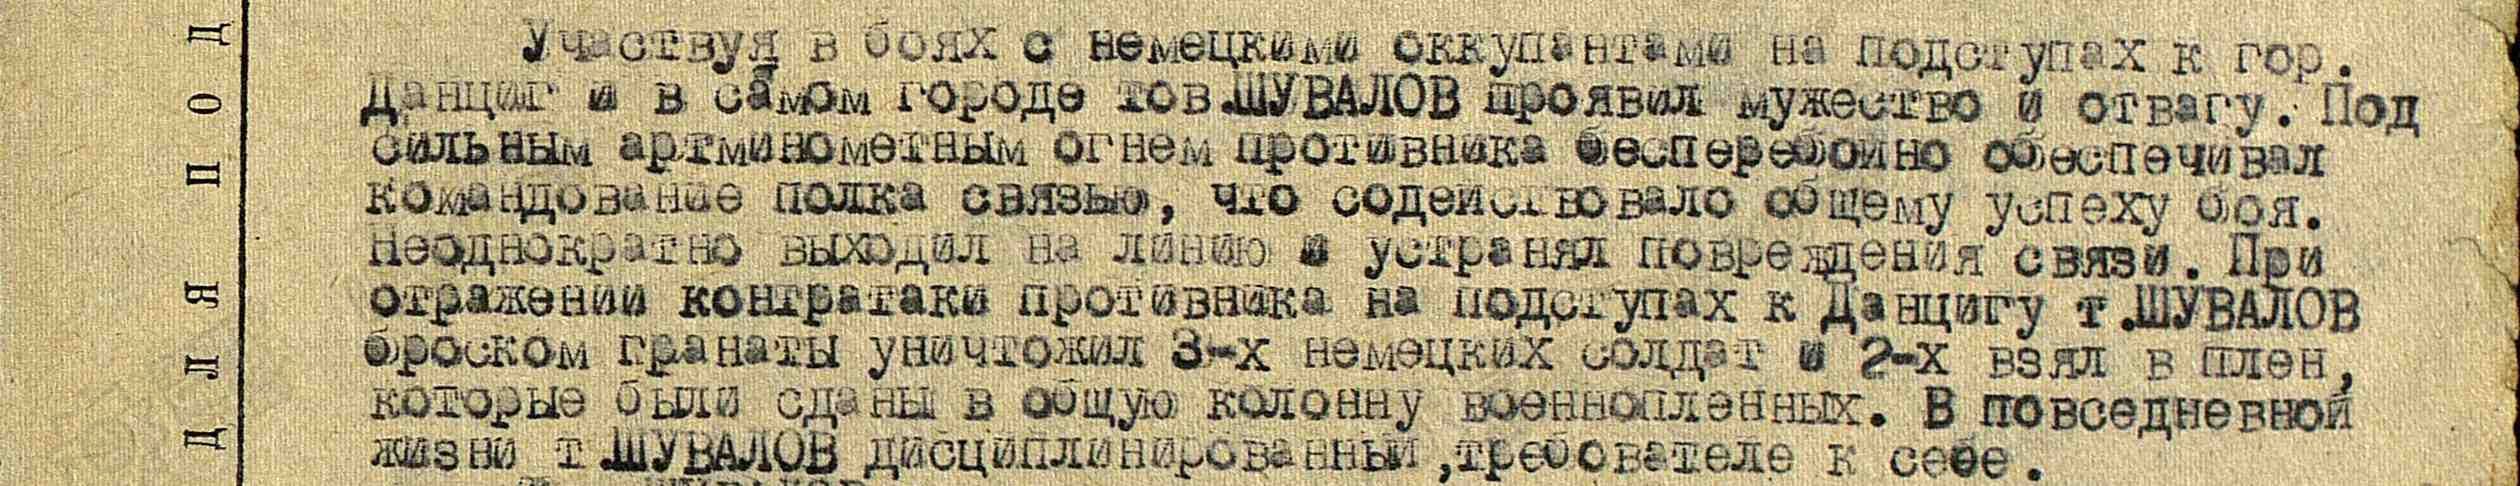 Участвуя в боях с немецкими оккупантами на подступах к гор.
Данциг и в самом городе тов.ШУВАЛОВ проявил мужество и отвагу. Под
сильным артминометным огнем противника бесперебойно обеспечивал
командование полка связью, что содействовало общему успеху боя.
Неоднократно выходил на линию и устранял повреждения связи. При
отражении контратаки противника на подступах к Данцигу т.ШУВАЛОВ
броском гранаты уничтожил 3-х немецких солдат и 2-х взял в плен,
которые были сданы в общую колонну военнопленных. В повседневной
жизни т.ШУВАЛОВ дисциплинированный,требователе к себе.
ДЛЯ ПОД